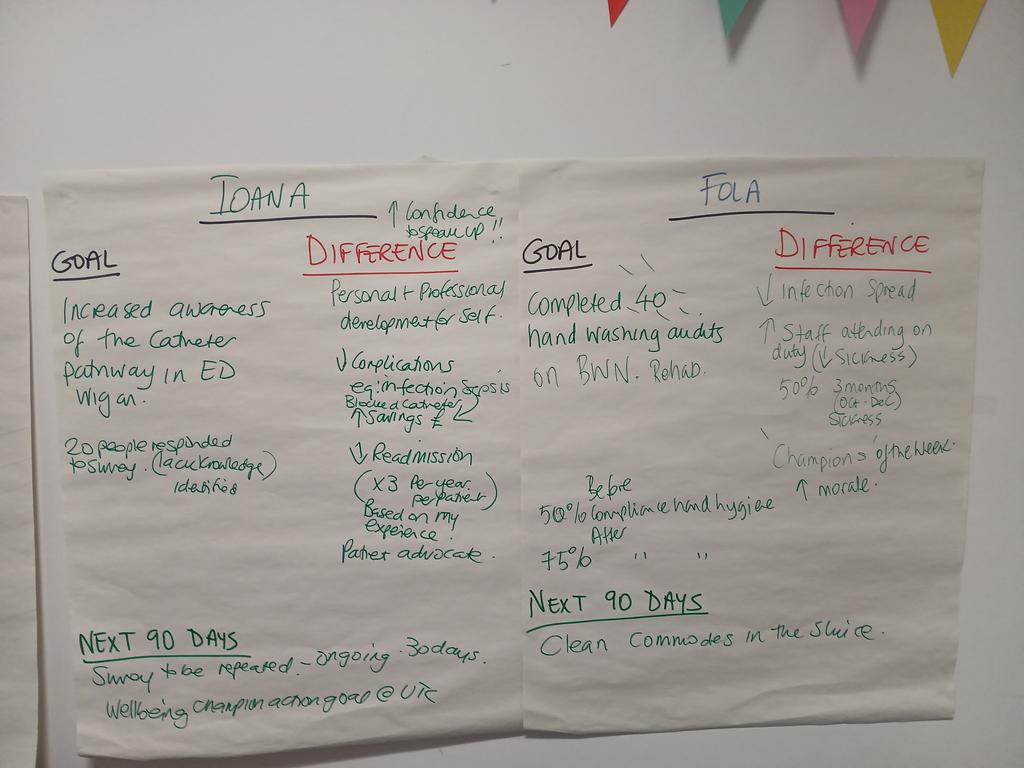 IOANA
↑ Confidence
to speak up !!
GOAL
DIFFERENCE
Increased awareness
of the Catheter
pathway in ED
Wigan.
20 people responded
to survey. (lack knowledge)
identified
Personal + Professional
development for self.
↓ Complications
eg infection Sepsis
Blocked catheter
↑ Savings £
↓ Readmission
(x3 Per year
per patient)
Based on my
experience.
Patient advocate.
NEXT 90 DAYS
Survey to be repeated - ongoing. 30 days.
Wellbeing Champion action goal @ UTC
FOLA
GOAL
DIFFERENCE
Completed 40
hand washing audits
on BWN. Rehab.
Before
50% Compliance hand hygiene
After
75% " "
↓ Infection Spread
↑ Staff attending on
duty (↓ Sickness)
50% 3 months
(Oct - Dec)
Sickness
'Champions of the week'
↑ morale.
NEXT 90 DAYS
Clean Commodes in the Sluice.